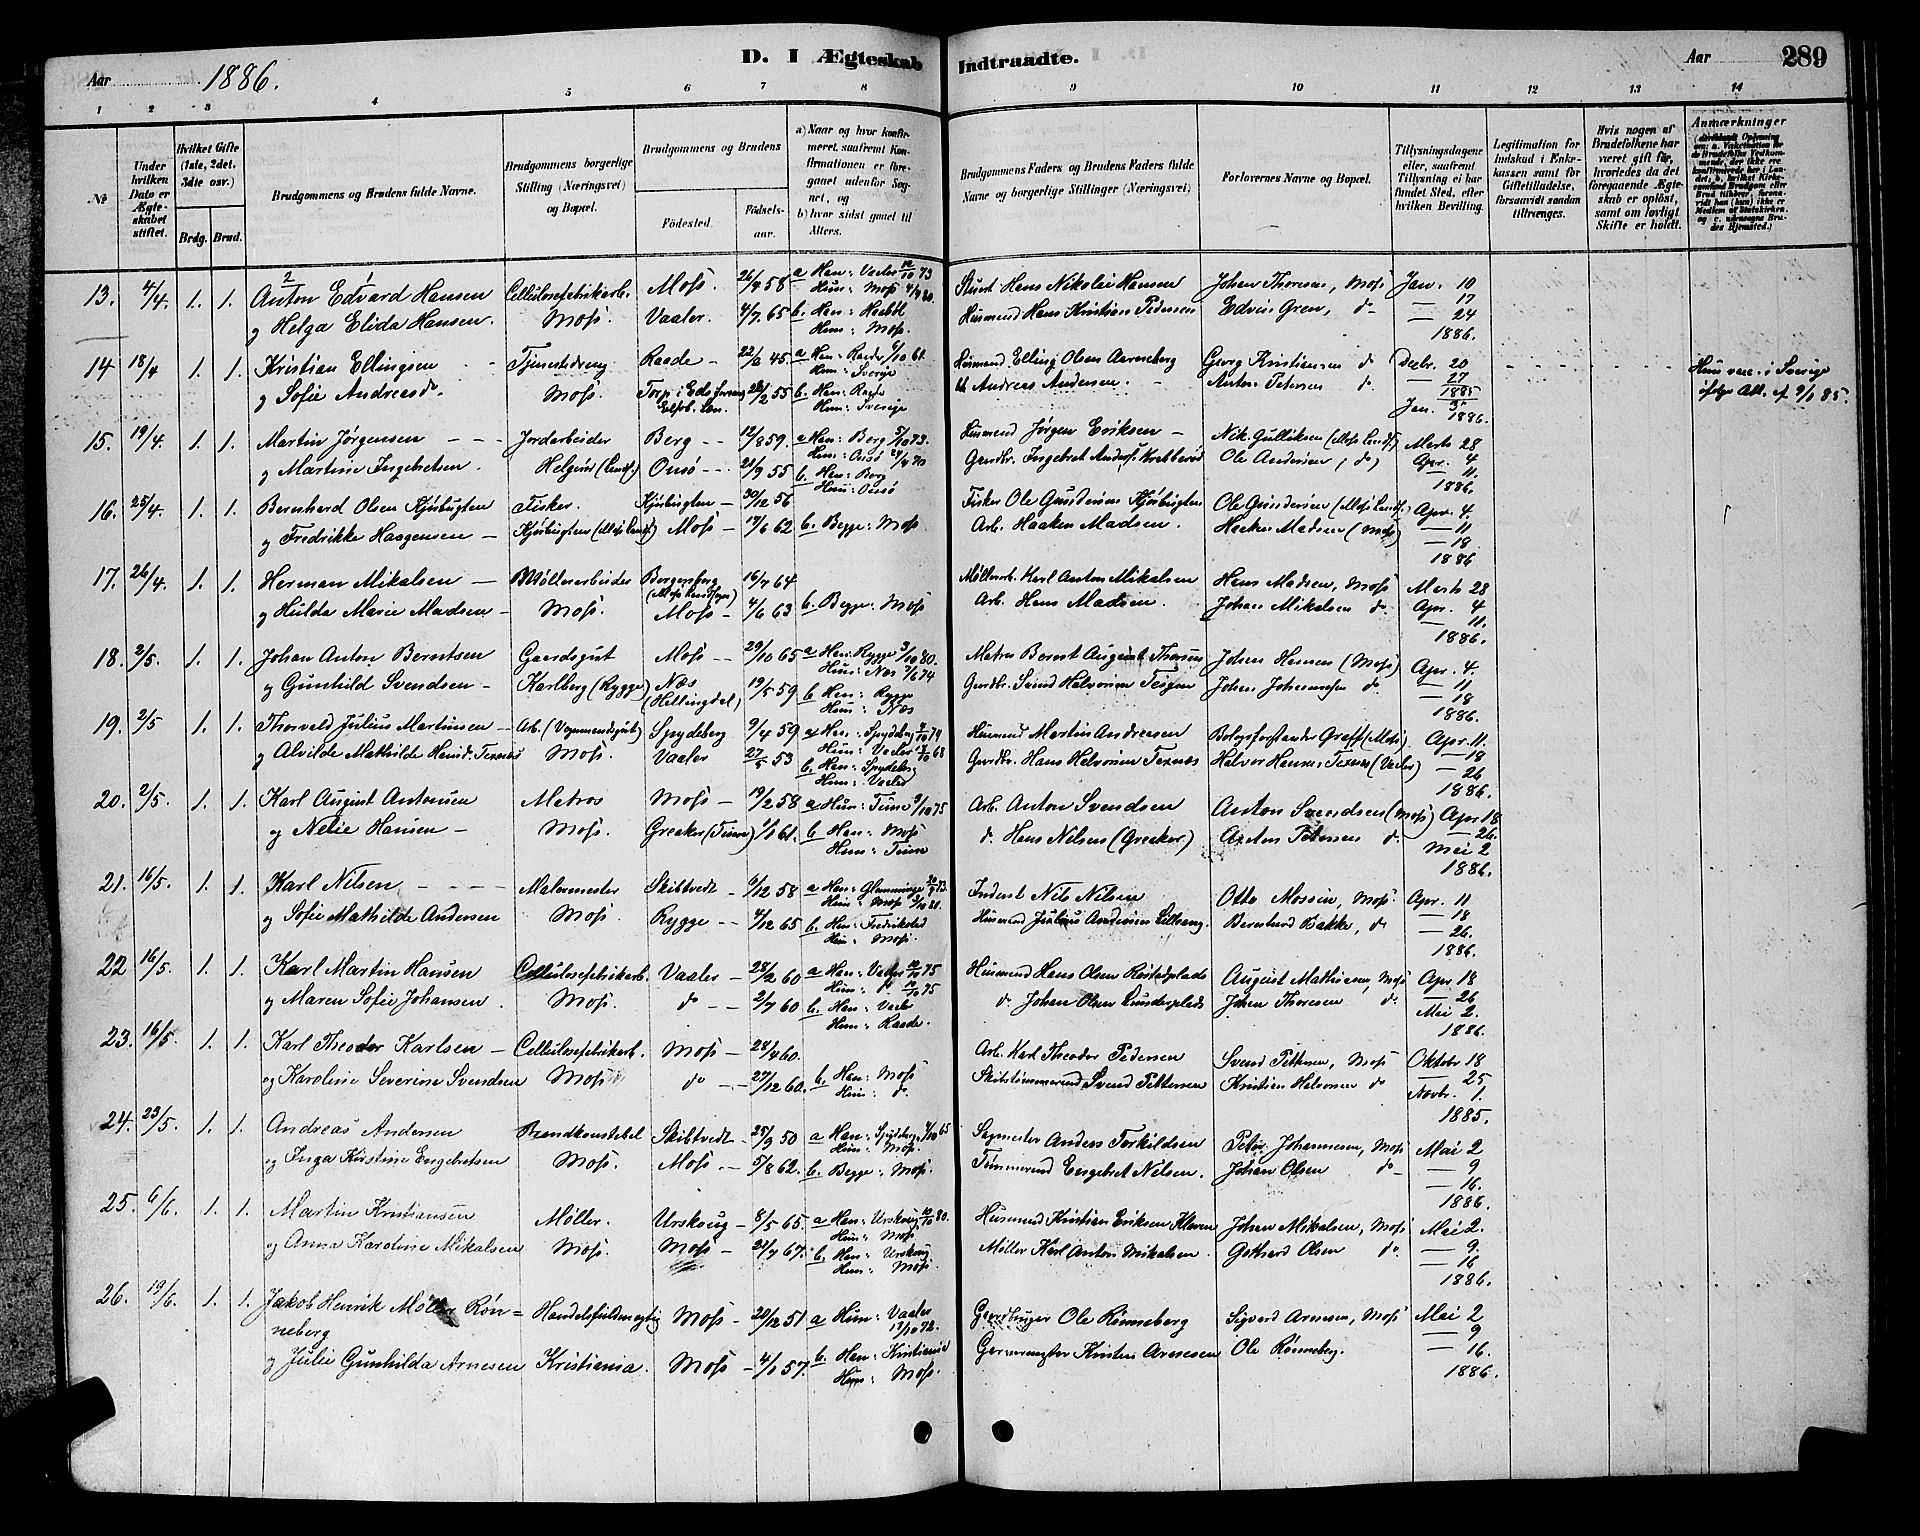 D. I Ægteskab Indtraadte.
Aar 1886. Aar 289
1 2 3 4 5 6 7 8 9 10 11 12 13 14
No
Under hvilken Dato er Ægteskabet stiftet.
Hvilket Gifte (1ste, 2det, 3die osv.)
Brdg. Brud.
Brudgommens og Brudens fulde Navne.
Brudgommens borgerlige Stilling (Næringsvei) og Bopæl.
Brudgommens og Brudens
Fødested. Fødselsaar.
a) Naar og hvor konfirmeret, saafremt Konfirmationen er foregaaet udenfor Sognet, og
b) hvor sidst gaaet til Alters.
Brudgommens Faders og Brudens Faders fulde Navne og borgerlige Stillinger (Næringsvei)
Forlovernes Navne og Bopæl.
Tillysningsdagene eller, saafremt Tillysning ei har fundet Sted, efter hvilken Bevilling.
Legitimation for Indskud i Enkekassen samt for Giftetilladelse, forsaavidt saadan tiltrænges.
Hvis nogen af Brudefolkene har været gift før, hvorledes da det foregaaende Ægteskab er opløst, samt om lovligt Skifte er holdt.
Anmærkninger
13. 4/4. 1. 1. Anton Edvard Hansen Cellulosefabrikarb. Moss 26/4 58 a Han: Vaaler 12/10 73 Hans Nikolai Hansen Johan Thoresen, Moss Jan. 10
Hun: Moss 4/4 80. — 17
og Helga Elida Hansen. Moss. Vaaler. 4/7 65 b. Han: Hun: Moss. Husmand Hans Kristian Pedersen Edvin Gren, do — 24
1886.
14 18/4 1. 1. Kristian Ellingsen Tjenestedreng Raade 22/2 45. a Han: Raade 6/10 61. Husmand Elling Olsen Aarneberg Georg Kristiansen do Decbr. 20
Hun: Sverige — 27
og Sofie Andreasd. Moss. Torp i Eds Elfsb. Len. 55 b. Han: Raade Hun: Sverige Andreas Andersen. Anton Petersen do 1885
Jan. 3 1886.
Hun vac. i Sverige ifølge Att. af 9/1 85.
15. 19/4. 1. 1. Martin Jørgensen Jordarbeider Berg 12/8 59. a Han: Berg 5/10 73. Husmand Jørgen Eriksen Nik. Gulliksen (Moss Landsf.) Marts 28
Hun: Onsø Apr. 4
og Martine Ingebretsen. Helgerød (Landsf. Onsø 21/9 55 b. Han: Berg Hun: Onsø Gaardbr. Ingebret Anders. Ole Andersen (do) — 11.
1886.
16. 25/4. 1. 1. Bernhard Olsen Kjøbugten Fisker. Kjøbugten 30/12 56 Fisker Ole Gundersen Kjøbugten Ole Gundersen (Moss Landsf. Apr. 4.
— 11
og Fredrikke Haagensen Kjøbugten (Moss Landsf) Moss 17/6 62 b. Begge: Moss Arb. Haaken Madsen. Haaken Madsen (Moss) — 18
1886
17. 26/4. 1. 1. Herman Mikalsen Møllerarbeider Bergersborg (Moss Landsogn) 16/7 64 Møllerarb. Karl Anton Mikalsen Hans Madsen, Moss Marts 28
og Hulda Marie Madsen Moss. Moss 4/6 63 b. Begge: Moss Arb. Hans Madsen. Johan Mikalsen do Apr. 4
— 11.
1886.
18. 2/5. 1. 1. Johan Anton Berntsen Gaardsgut Moss 29/10 65 a Han: Rygge 3/10 80. Matros Bernt August Thoresen Johan Hansen (Moss) Apr. 4.
Hun: Næs 7/6 74 — 11
og Gunhild Svendsen Karlberg (Rygge) Næs (Hallingdal) 19/5 59 b Han: Rygge Hun: Næs Gaardbr. Svend Halvorsen Teigen Johan Johannesen do. — 18
1886.
19. 2/5. 1. 1. Thorvald Julius Martinsen Arb. (Vognmandsgut) Spydeberg 9/4 59 a Han: Spydeberg Husmand Martin Andresen Bologsforstander Graff (Moss) Apr. 11.
Hun: Vaaler — 18
og Alvilde Mathilde Hansd. Texnæs Moss. Vaaler 27/5 53 b. Han: Spydeberg Hun: Vaaler Gaardbr. Hans Halvorsen Texnæs Halvor Hansen Texnæs (Vaaler) — 26
1886.
20. 2/5. 1. 1. Karl August Antonsen Matros Moss 19/2 58 a Hun: Tune 9/10 75 Arb. Anton Svendsen Anton Svendsen (Moss) Apr. 18
— 26.
og Nelie Hansen Moss. Greaker (Tune) 1/1 61. b Han: Moss Hun: Tune do. Hans Nilsen (Greaker) Anton Petersen do. Mai 2
1886.
21. 16/5. 1. 1. Karl Nilsen Malermester Skibtvedt 6/12 58 a Han: Glemminge Hun: Moss Inderst Nils Nilsen Otto Mossin, Moss Apr. 11
og Sofie Mathilde Andersen Moss. Rygge 7/12 65 b. Han: Fredriksted Hun: Moss. Husmand Julius Andersen Bernhard Bakke, do — 18
— 26.
1886.
22 16/5. 1. 1. Karl Martin Hansen Cellulosefabrikarb. Vaaler 28/2 60 a Han: Vaaler 12/10 75 Hun: do 12/10 75 Husmand Hans Olsen August Mathiesen, Moss Apr. 18
og Maren Sofie Johansen. Moss. do 2/7 60 b. Han: Vaaler Hun: Raade. do. Johan Olsen Johan Thoresen do. — 26
Mai 2.
1886.
23. 16/5. 1. 1. Karl Theodor Karlsen Cellulosefabrikarb. Moss 28/4 60. Arb. Karl Theodor Pedersen Svend Pettersen, Moss Oktober 18
og Karoline Severine Svendsen Moss do 27/12 60. b. Han: Moss Hun: do. Skibstømmermand Svend Pettersen Kristian Halvorsen do — 25
Novbr. 1.
1885.
24. 23/5. 1. 1. Andreas Andersen Brandkonstabel Skibtvedt 25/9 50 a Han: Spydeberg Hun: Moss. Sagmester Anders Torkildsen Peter Johannesen, Moss Mai 2
og Inga Kirstine Engebretsen Moss. Moss. 5/8 62. b. Begge: Moss. Tømmermand Engebret Nilsen. Johan Olsen do — 9
— 16.
1886.
25. 6/6. 1. 1. Martin Kristiansen Møller. Urskoug 8/5 65. a Han: Urskoug 10/10 80. Hun: Moss Husmand Kristian Eriksen Johan Mikalsen, Moss Mai 2.
og Anna Karoline Mikalsen Moss. Moss 23/7 67. b. Han: Urskoug Hun: Moss Møller Karl Anton Mikalsen. Gothard Olsen do. — 9.
— 16
1886.
26. 19/6. 1. 1. Jakob Henrik Møller Rønneberg Handelsfuldmægtig Moss 20/12 51 a Hun: Vaaler 17/10 72. Ole Rønneberg Sigvard Arnesen, Moss Mai 2
— 9
og Julie Gunhilda Arnesen Kristiania. Moss 4/1 57. b. Han: Kristiania Hun: Moss. Garvermester Kristen Arnesen Ole Rønneberg. — 16.
1886.